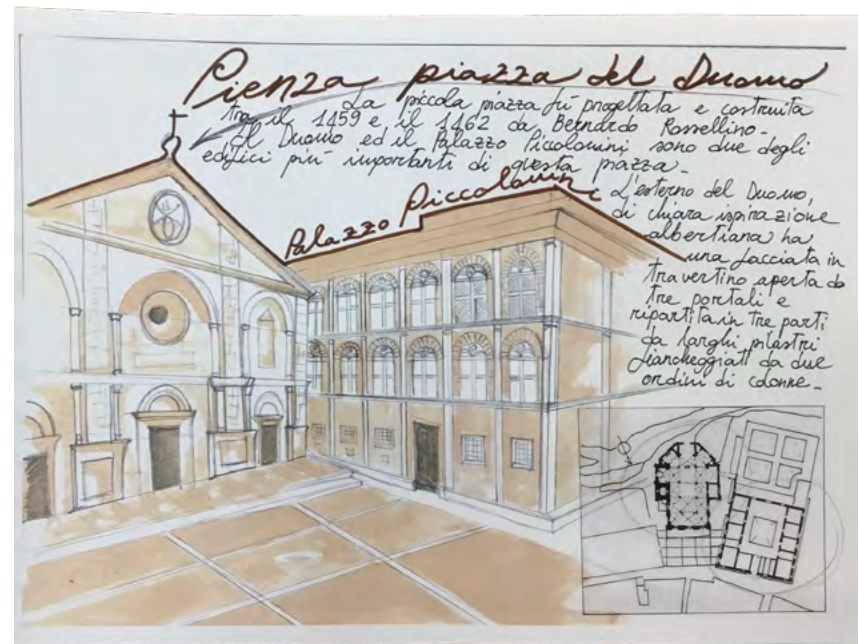 Pienza piazza del Duomo
La piccola piazza fù progettata e costruita
tra il 1459 e il 1462 da Bernardo Rossellino-
Il Duomo ed il Palazzo Piccolomini sono due degli
edifici più importanti di questa piazza-
Palazzo Piccolomini
L'esterno del Duomo,
di chiara ispirazione
albertiana ha
una facciata in
travertino aperta da
tre portali e
ripartita in tre parti
da larghi pilastri
fiancheggiati da due
ordini di colonne-